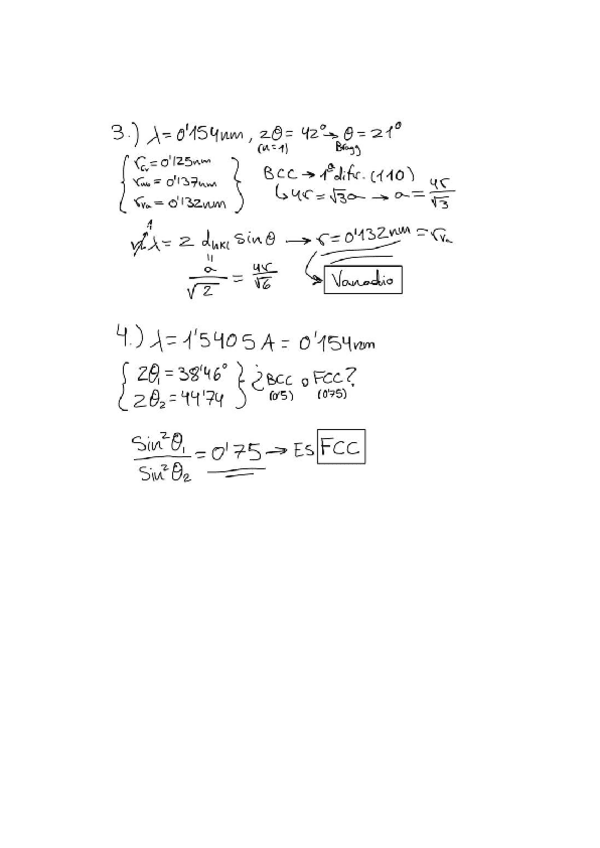 3.) λ=0'154nm, 2θ=42°→θ=21°
(n=1) Bragg
r_Cr=0'125nm
r_Nb=0'137nm
r_Va=0'132nm
BCC→1ª difr.(110)
↳4r=√3a→a=4r/√3
n λ=2 d_HKL sinθ →r=0'132nm=r_Va
1
=
a/√2 = 4r/√6
Vanadio
4.) λ=1'5405A=0'154nm
2θ₁=38'46°
2θ₂=44'74
¿BCC o FCC?
(0'5) (0'75)
Sin²θ₁/Sin²θ₂=0'75→ES FCC